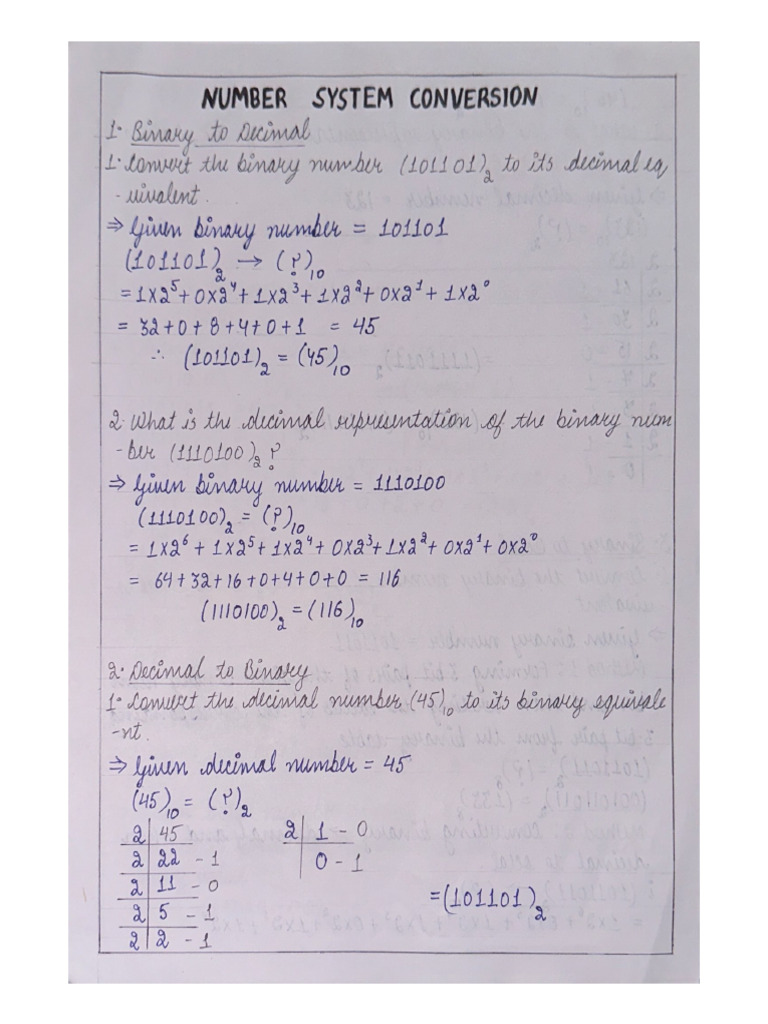 NUMBER SYSTEM CONVERSION
1. Binary to Decimal
1. Convert the binary number (101101)₂ to its decimal eq
-uivalent.
⇒ Given binary number = 101101
(101101)₂ → (?)₁₀
= 1×2⁵+0×2⁴+1×2³+1×2²+0×2¹+1×2⁰
= 32+0+8+4+0+1 = 45
∴ (101101)₂ = (45)₁₀
2. What is the decimal representation of the binary num
-ber (1110100)₂ ?
⇒ Given binary number = 1110100
(1110100)₂ = (?)₁₀
= 1×2⁶ + 1×2⁵+1×2⁴+0×2³+1×2²+0×2¹+0×2⁰
= 64+32+16+0+4+0+0 = 116
(1110100)₂ = (116)₁₀
2. Decimal to Binary
1. Convert the decimal number (45)₁₀ to its binary equivale
-nt.
⇒ Given decimal number = 45
(45)₁₀ = (?)₂
2 | 45
2 | 22 - 1
2 | 11 - 0
2 | 5 - 1
2 | 2 - 1
2 | 1 - 0
0 - 1
=(101101)₂